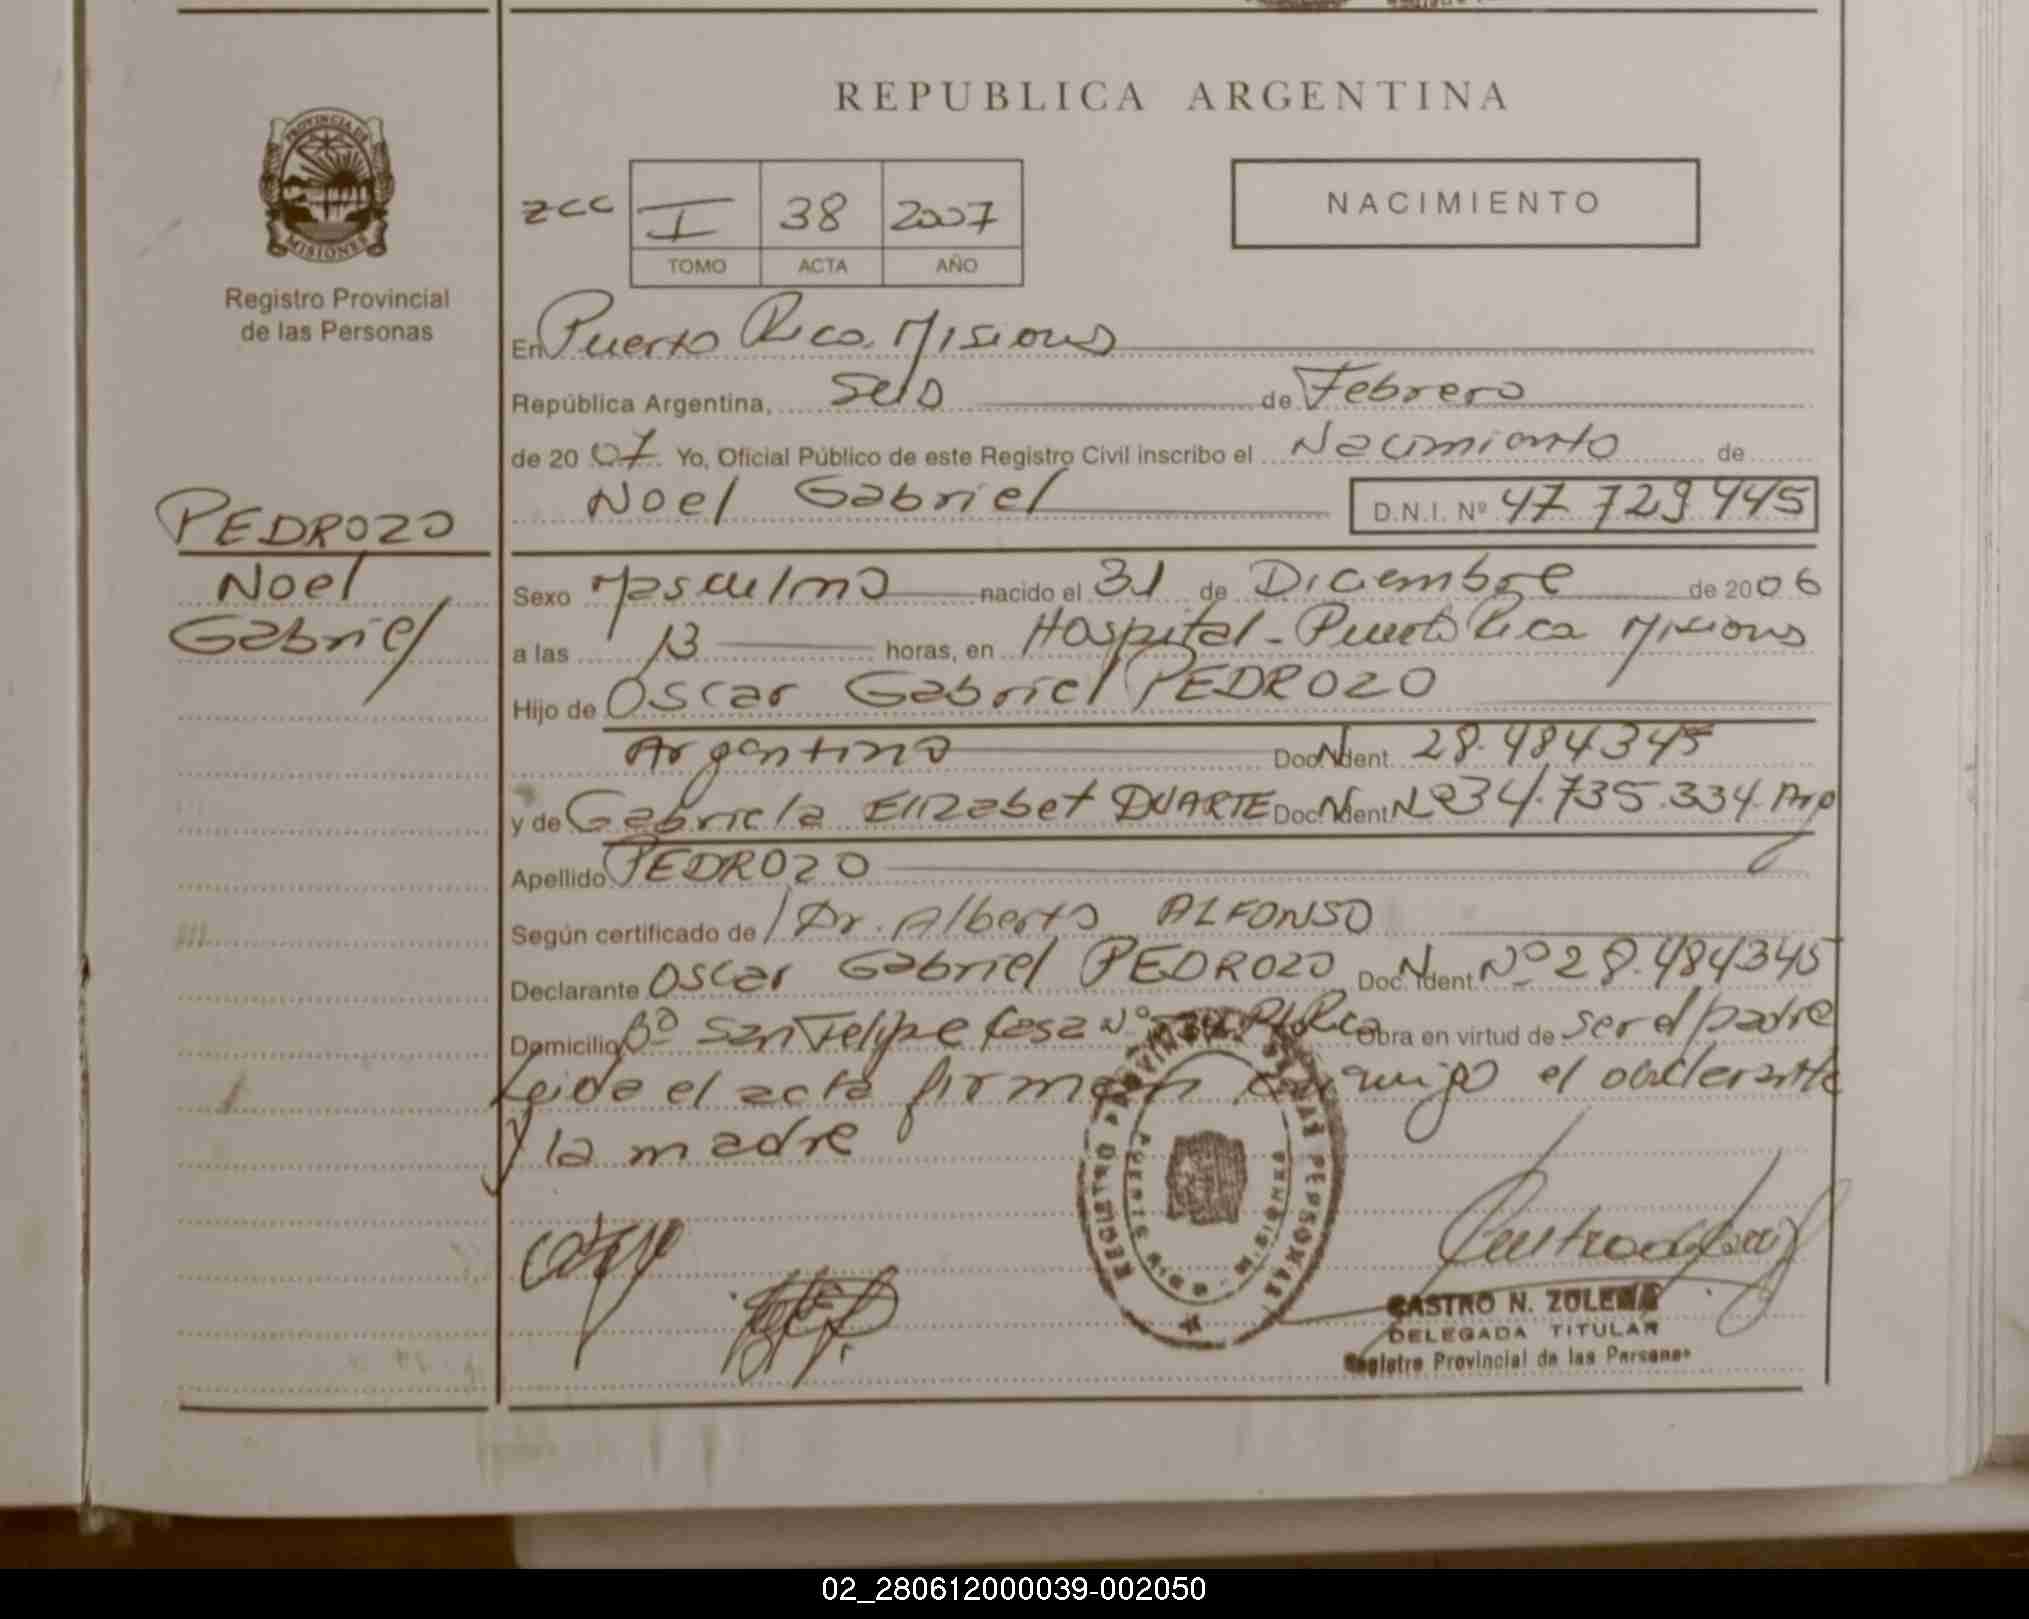 REPUBLICA ARGENTINA
PROVINCIA DE
MISIONES
Registro Provincial
de las Personas
zcc I 38 2007
TOMO ACTA AÑO
NACIMIENTO
En Puerto Rico. Misiones
República Argentina, Seis de Febrero
de 2007 Yo, Oficial Público de este Registro Civil inscribo el Nacimiento de
Noel Gabriel D.N.I. Nº 47 729 445
PEDROZO
Noel
Gabriel
Sexo Masculino nacido el 31 de Diciembre de 2006
a las 13 horas, en Hospital - Puerto Rico Misiones
Hijo de Oscar Gabriel PEDROZO
Argentino Doc. N Ident. 28.484345
y de Gabriela Elizabet DUARTE Doc. N Ident. Nº 34.735.334. Arg
Apellido PEDROZO
Según certificado de Dr. Alberto ALFONSO
Declarante Oscar Gabriel PEDROZO Doc. N Ident. Nº 28.484345
Domicilio Bº San Felipe Casa Nº Pto Rico Obra en virtud de ser el padre
Leida el acta firman conmigo el declarante
y la madre
REGISTRO PROVINCIAL DE LAS PERSONAS
CASTRO N. ZULEMA
DELEGADA TITULAR
Registro Provincial de las Personas
02_280612000039-002050